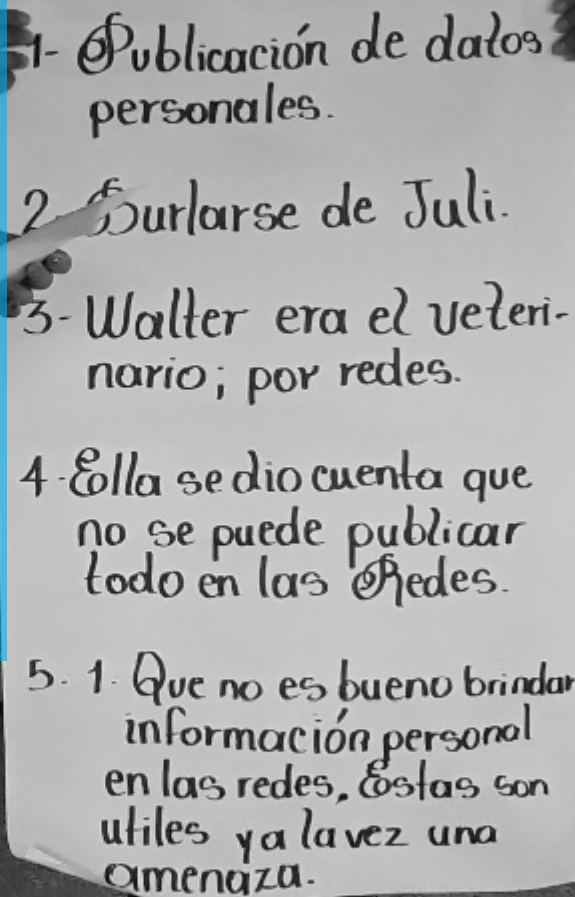 1- Publicación de datos
personales.
2- Burlarse de Juli.
3- Walter era el veteri-
nario; por redes.
4. Ella se dio cuenta que
no se puede publicar
todo en las Redes.
5. 1. Que no es bueno brindar
información personal
en las redes, Estas son
utiles y a la vez una
amenaza.